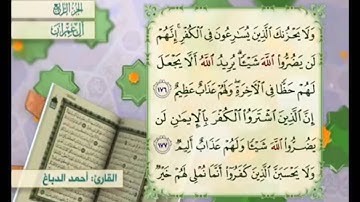 الجزء الرابع
آل عمران
وَلَا يَحْزُنكَ الَّذِينَ يُسَارِعُونَ فِي الْكُفْرِ ۚ إِنَّهُمْ
لَن يَضُرُّوا اللَّهَ شَيْئًا ۗ يُرِيدُ اللَّهُ أَلَّا يَجْعَلَ
لَهُمْ حَظًّا فِي الْآخِرَةِ ۖ وَلَهُمْ عَذَابٌ عَظِيمٌ ١٧٦
إِنَّ الَّذِينَ اشْتَرَوُا الْكُفْرَ بِالْإِيمَانِ لَن
يَضُرُّوا اللَّهَ شَيْئًا وَلَهُمْ عَذَابٌ أَلِيمٌ ١٧٧
وَلَا يَحْسَبَنَّ الَّذِينَ كَفَرُوا أَنَّمَا نُمْلِي لَهُمْ خَيْرٌ
القارئ: أحمد الدباغ